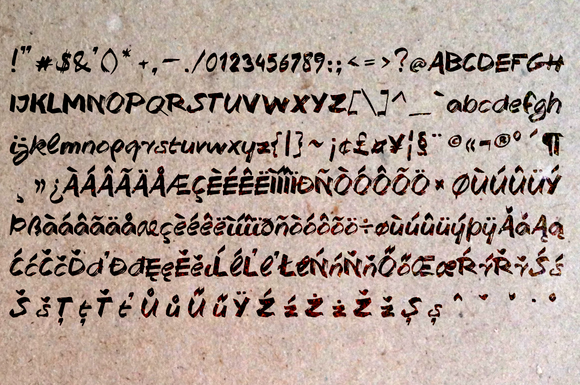 !"#$&'()*+,-./0123456789:;<=>?@ABCDEFGH
IJKLMNOPQRSTUVWXYZ[\]^_`abcdefgh
ijklmnopqrstuvwxyz{|}~¡¢£¤¥¦§¨©«¬®°´¶
¸»¿ÀÁÂÃÄÅÆÇÈÉÊËÌÍÎÏÐÑÒÓÔÕÖ×ØÙÚÛÜÝ
Þßàáâãäåæçèéêëìíîïðñòóôõö÷øùúûüýþÿĂăĄą
ĆćČčĎďĐđĘęĚěıĹĺĽľŁłŃńŇňŐőŒœŔŕŘřŚś
ŠšŢţŤťŮůŰűŸŹźŻżŽžȘșˆˇ